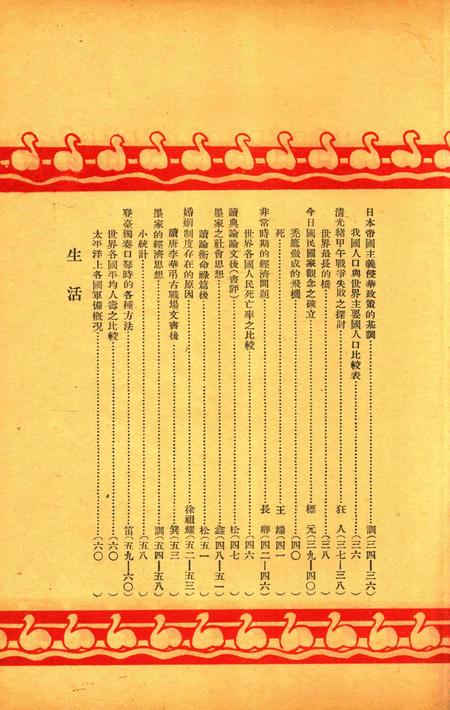 日本帝國主義侵華政策的基調……訓(三四—三六)
我國人口與世界主要國人口比較表……(三六)
清光緒甲午戰爭失敗之探討……狂人(三七—三八)
世界最長的橋……(三八)
今日國民國家觀念之確立……標元(三九—四〇)
禿鷹做成的飛機……(四〇)
死……王端(四一)
非常時期的經濟問題……長卿(四二—四六)
世界各國人民死亡率之比較……(四六)
讀典論論文後(書評)……松(四七)
墨家之社會思想……鑫(四八—五一)
讀論衡命祿篇後……松(五一)
婚姻制度存在的原因……徐祖耀(五二—五三)
讀唐李華弔古戰場文書後……箕(五三)
墨家的經濟思想……訓(五四—五八)
小統計……(五八)
登臺獨奏口琴時的各種方法……笛(五九—六〇)
世界各國平均人壽之比較……(六〇)
太平洋上各國軍備概況……(六〇)
生活